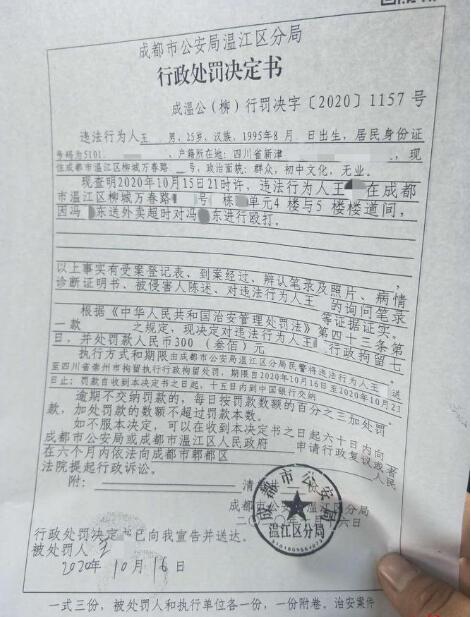 成都市公安局温江区分局
行政处罚决定书
成温公(柳)行罚决字〔2020〕1157号
违法行为人王 男,25岁,汉族,1995年8月 日出生,居民身份证
号码为5101 ,户籍所在地:四川省新津 ,现
住成都市温江区柳城万春路 号,政治面貌:群众,初中文化,无业。
现查明2020年10月15日21时许,违法行为人王 在成都
市温江区柳城万春路 号 栋 单元4楼与5楼楼道间,
因冯 东送外卖超时对冯 东进行殴打。
以上事实有受案登记表、到案经过、辨认笔录及照片、病情
诊断证明书、被侵害人陈述、对违法行为人王 的询问笔录
等证据证实。
根据《中华人民共和国治安管理处罚法》第四十三条第
一款 之规定,现决定对违法行为人王 行政拘留七
日,并处罚款人民币300(叁佰)元
执行方式和期限由成都市公安局温江区分局民警将违法行为人王 送
至四川省崇州市拘留执行行政拘留处罚,期限自2020年10月16日至2020年10月23
日止;罚款自收到本决定书之日起,十五日内到中国银行交纳
逾期不交纳罚款的,每日按罚款数额的百分之三加处罚
款,加处罚款的数额不超过罚款本数。
如不服本决定,可以在收到本决定书之日起六十日内向
成都市公安局或成都市温江区人民政府 申请行政复议或者
在六个月内依法向成都市郫都区 人民
法院提起行政诉讼。
附: 清
成都市公安局温江区分局
二〇二 六日
成都市公安局
温江区分局
行政处罚决定 已向我宣告并送达。
被处罚人 王
2020年10月16日
一式三份,被处罚人和执行单位各一份,一份附卷。治安案件